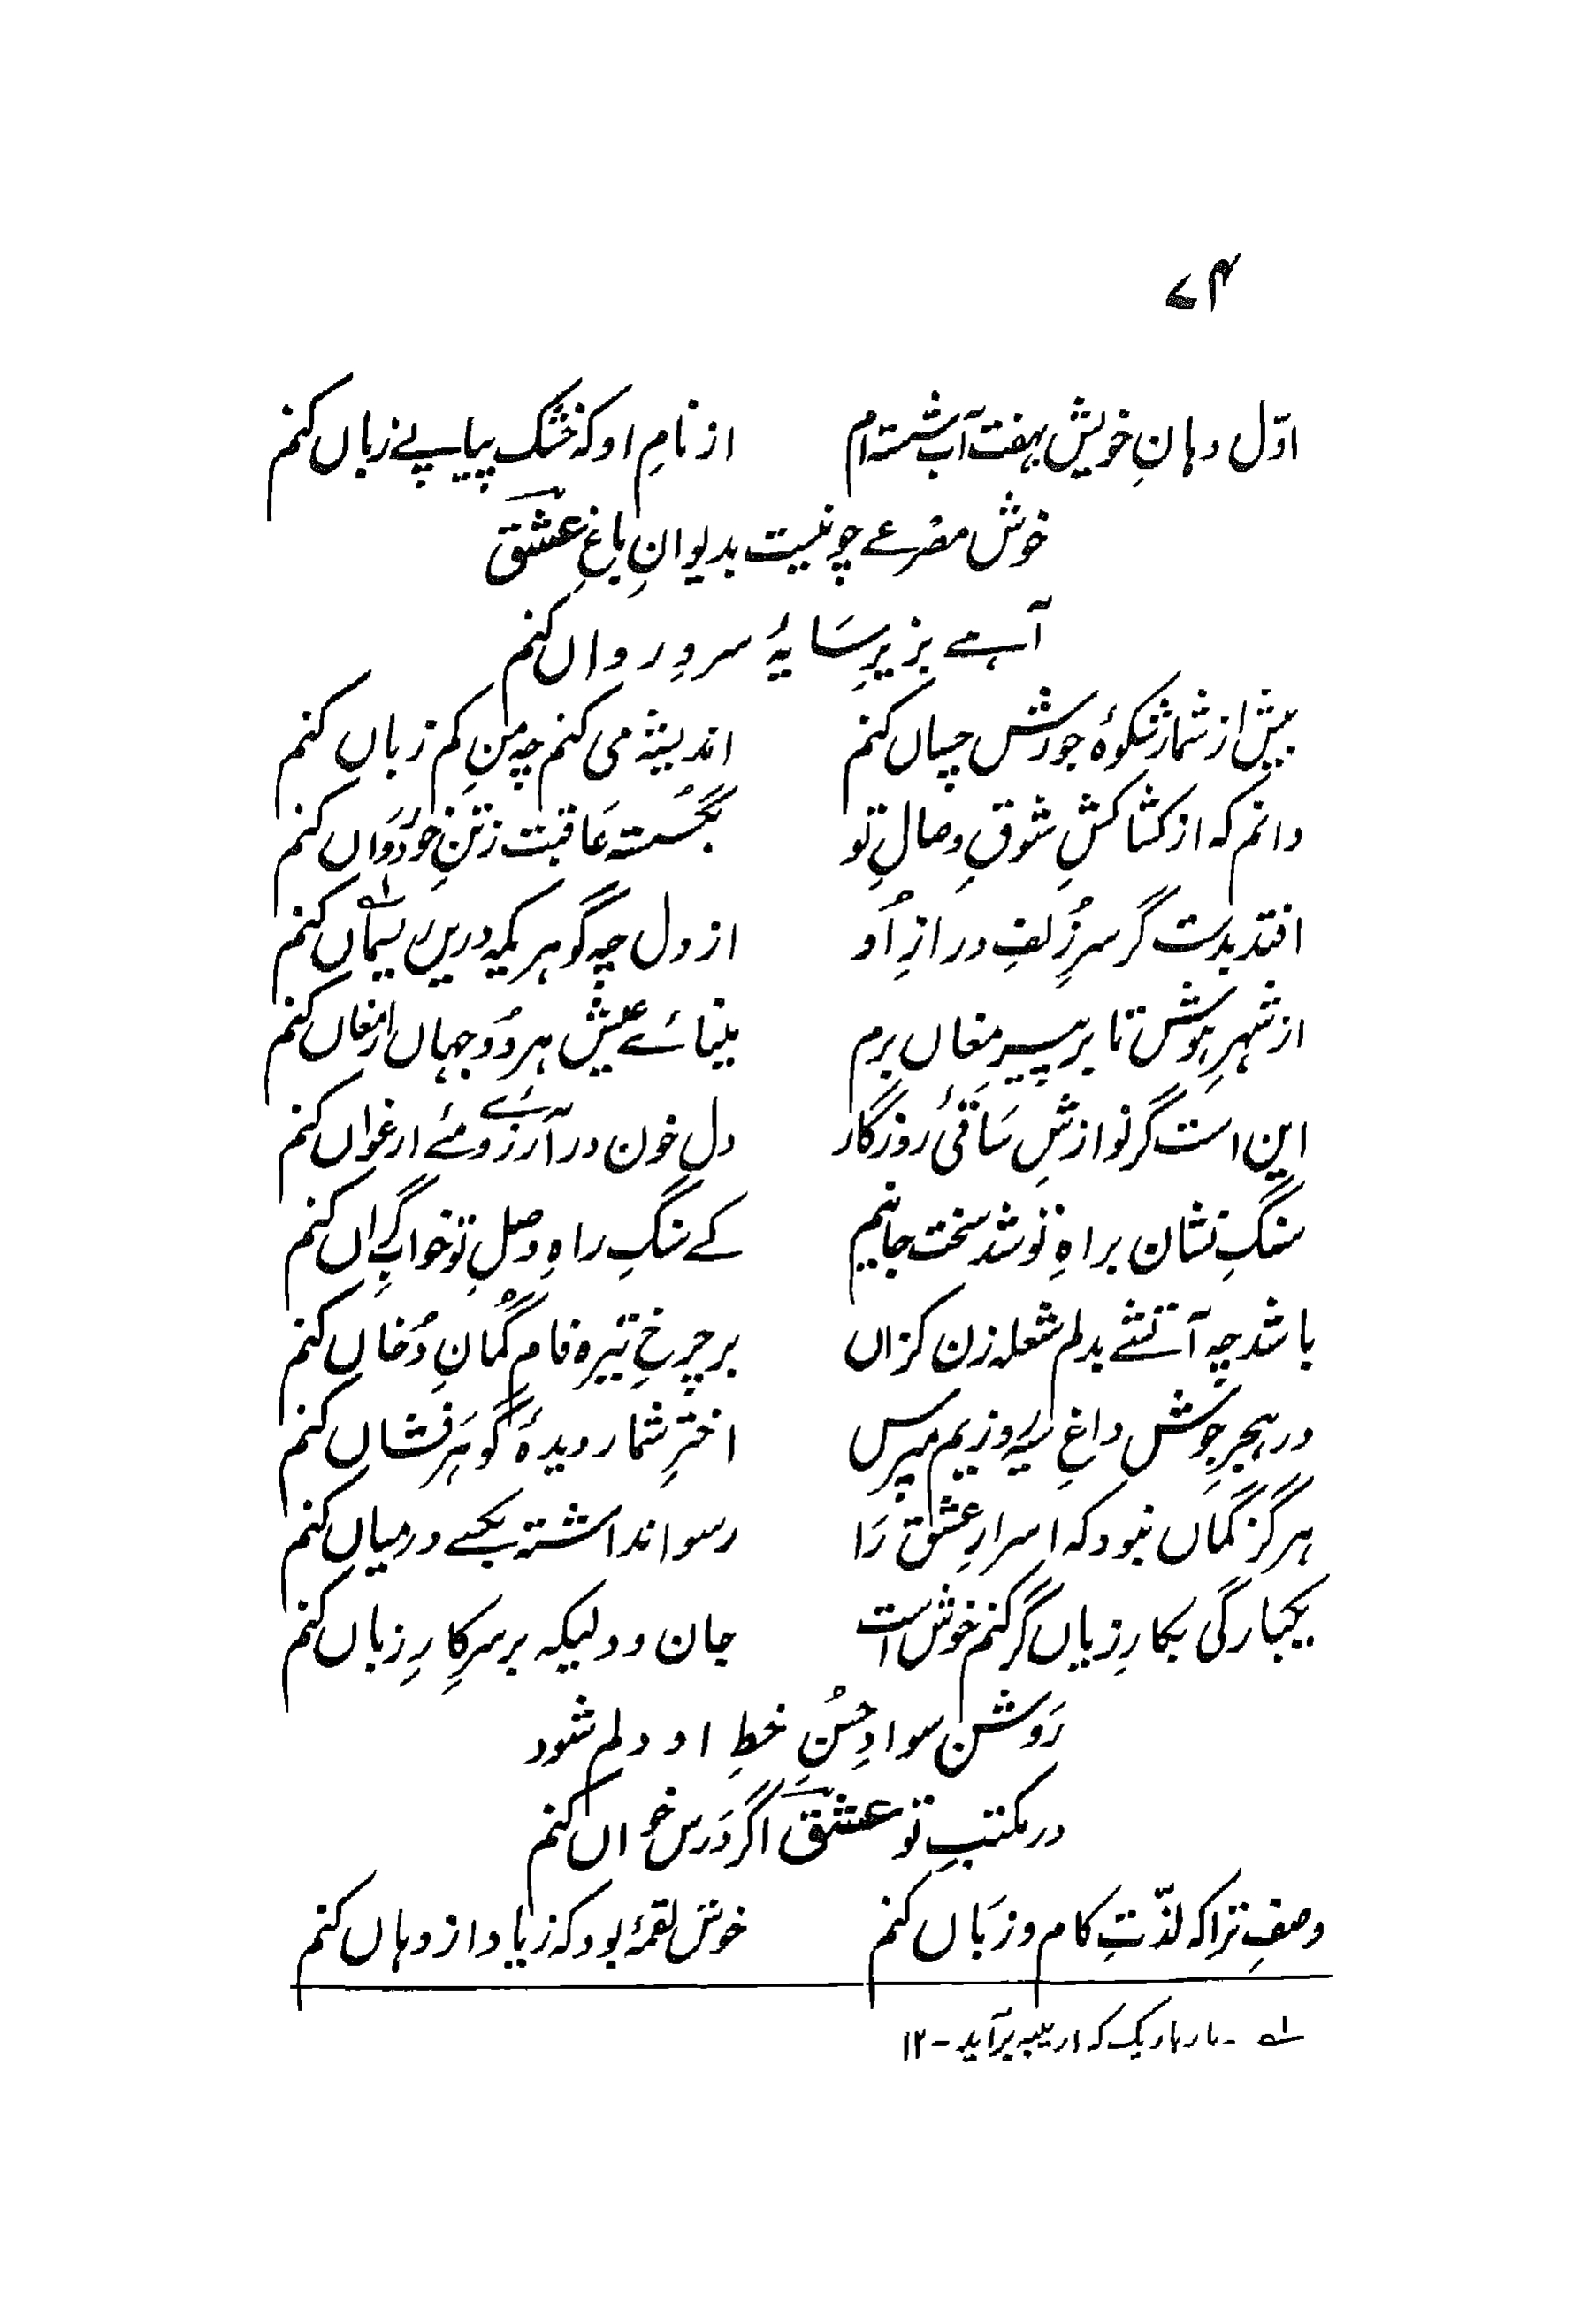 ۷۴
اوّل دہانِ خویش بہفت آب شستہ ام از نامِ او کہ خشک پیاپے زباں کنم
خوش مصرعے چو نیست بدیوانِ باغِ عشقؔ
آہے بزیرِ سَایۂ سروِ رواں کنم
بیش از شمار شکوۂ جورش چساں کنم اندیشہ می کنم چہ منِ کم زباں کنم
دانم کہ از کشاکشِ شوقِ وصالِ تو بگسُستہ عَاقبت ز تنِ خود رَواں کنم
افتد بدست گر سرِ زُلفِ درازِ اُو از دل چہ گوہریکہ دریں ریسماں کنم
از شہرِ ہوش تا برِ پیرِ مغاں برم یغمائے عیش ہر دُو جہاں ارمغاں کنم
این است گر نوازشِ سَاقیٔ روزگار دل خون در آرزوئے مئے ارغواں کنم
سنگِ نشان براہِ تو شد سخت جانیم کے سنگِ راہِ وصلِ تو خوابِ گراں کنم
باشد چہ آتشے بدلم شعلہ زن کزاں بر چرخِ تیرہ فام گُمانِ دُخاں کنم
در ہجرِ جوشِ داغِ سیہ روزیم مپرس اخترِ شمار دیدۂ گوہَر فشاں کنم
ہرگز گماں نبود کہ اسرارِ عشق رَا رسوا نداشتہ بکسے درمیاں کنم
یکبارگی بکارِ زیاں گر کنم خوش است جان و دلیکہ بر سرِ کارِ زباں کنم
رَوشن سوادِ حُسنِ خطِ او دلم شود
در مکتبِ تو عشقؔ اگر دَرس خواں کنم
وصفِ ترا کہ لذّتِ کام و زبَاں کنم خوش لقمۂ بود کہ زیاد از دہاں کنم
۱؎ - تار باریک کہ از پنبہ برآید - ۱۲